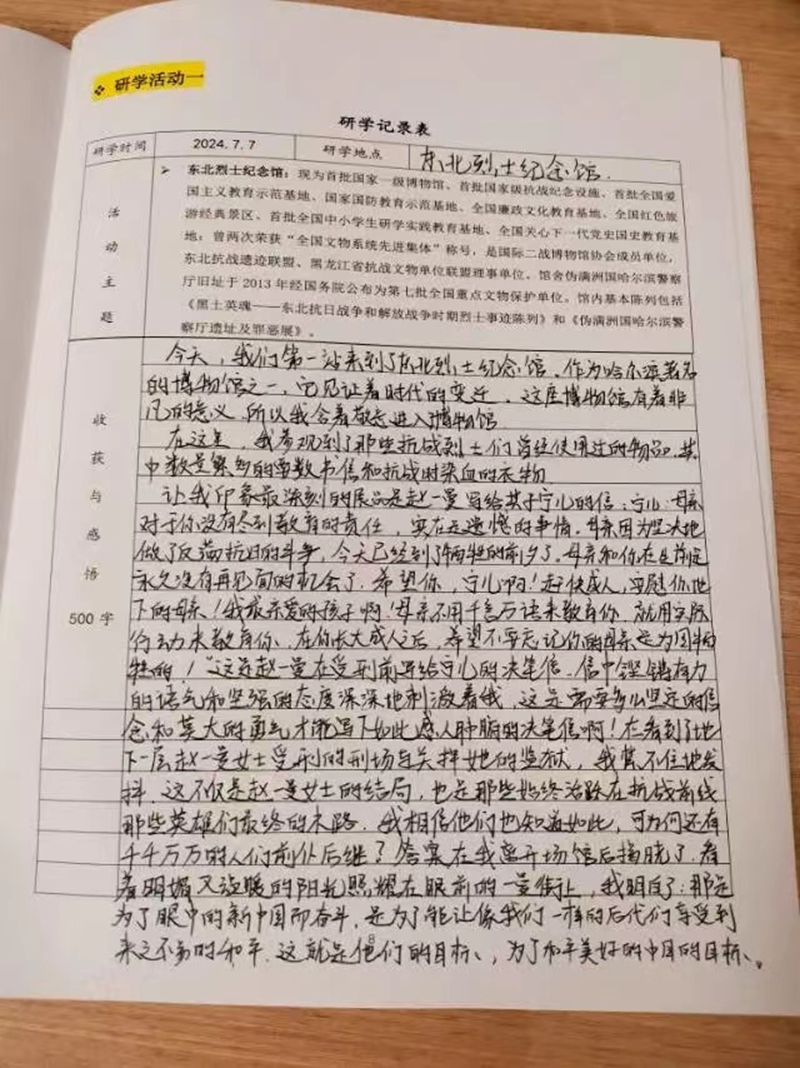 ❖ 研学活动一
研学记录表
研学时间 2024.7.7 研学地点 东北烈士纪念馆
活动主题
➢ 东北烈士纪念馆：现为首批国家一级博物馆、首批国家级抗战纪念设施、首批全国爱
国主义教育示范基地、国家国防教育示范基地、全国廉政文化教育基地、全国红色旅
游经典景区、首批全国中小学生研学实践教育基地、全国关心下一代党史国史教育基
地；曾两次荣获“全国文物系统先进集体”称号，是国际二战博物馆协会成员单位，
东北抗战遗迹联盟、黑龙江省抗战文物单位联盟理事单位。馆舍伪满洲国哈尔滨警察
厅旧址于 2013 年经国务院公布为第七批全国重点文物保护单位。馆内基本陈列包括
《黑土英魂——东北抗日战争和解放战争时期烈士事迹陈列》和《伪满洲国哈尔滨警
察厅遗址及罪恶展》。
收获与感悟
500 字
今天，我们第一站来到了东北烈士纪念馆。作为哈尔滨著名
的博物馆之一，它见证着时代的变迁。这座博物馆有着非
凡的意义，所以我含着敬意进入博物馆。
在这里，我参观到了那些抗战烈士们曾经使用过的物品。其
中数量繁多的要数书信和抗战时染血的衣物
让我印象最深刻的展品是赵一曼写给其子宁儿的信：宁儿：母亲
对于你没有尽到教育的责任，实在是遗憾的事情。母亲因为坚决地
做了反满抗日的斗争，今天已经到了牺牲的前夕了。母亲和你在生前是
永久没有再见面的机会了。希望你，宁儿啊！赶快成人，安慰你地
下的母亲！我最亲爱的孩子啊！母亲不用千言万语来教育你，就用实际
行动来教育你。在你长大成人之后，希望不要忘记你的母亲是为国牺
牲的！”这是赵一曼在受刑前写给宁儿的决笔信。信中铿锵有力
的语气和坚强的态度深深地刺激着我，这是需要多么坚定的信
念和莫大的勇气才能写下如此感人肺腑的决笔信啊！在看到了地
下一层赵一曼女士受刑的刑场与关押她的监狱，我禁不住地发
抖。这不仅是赵一曼女士的结局，也是那些始终活跃在抗战前线
那些英雄们最终的末路。我相信他们也知道如此，可为何还有
千千万万的人们前仆后继？答案在我离开场馆后揭晓了。看
着明媚又温暖的阳光照耀在眼前的一曼街上，我明白了：那是
为了眼中的新中国而奋斗，是为了能让像我们一样的后代们享受到
来之不易的和平。这就是他们的目标、，为了和平美好的中国的目标、。
8